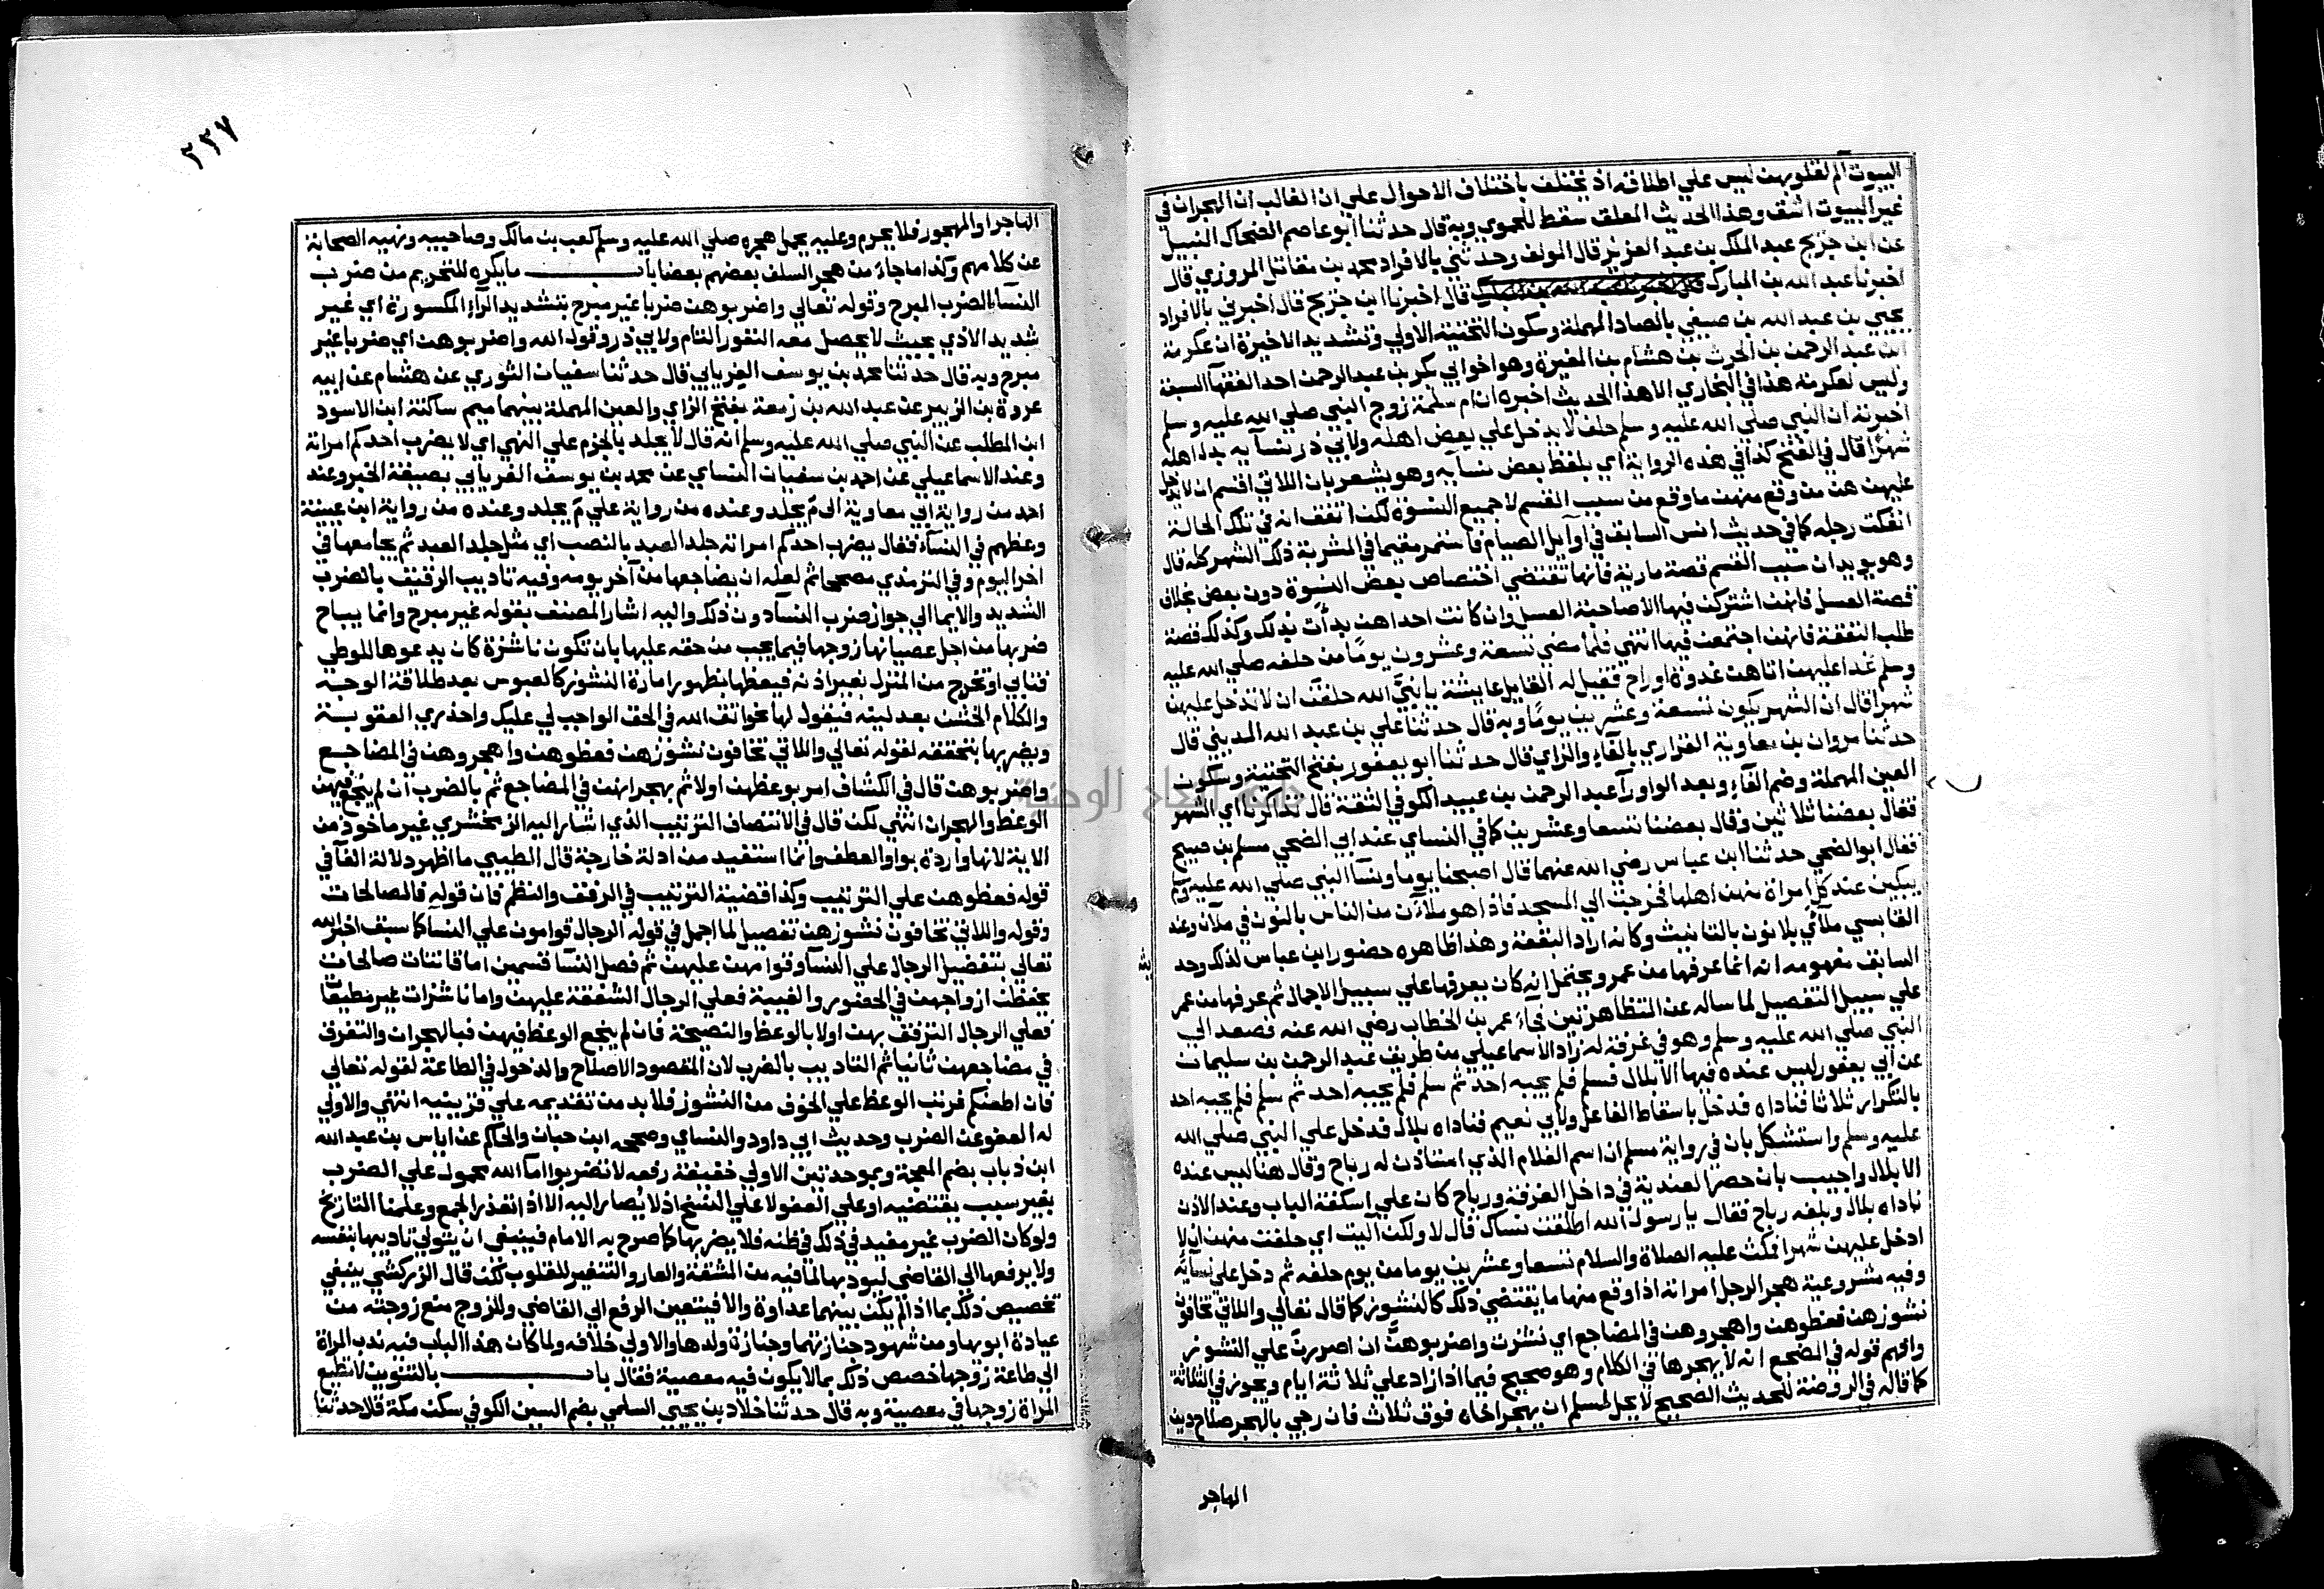 البيوت آلم لقلوبهن ليس علي اطلاقه اذ يختلف باختلاف الاحوال علي ان الغالب ان الهجران في
غير البيوت اشق وهذا الحديث المعلق سقط للحموي وبه قال حدثنا ابو عاصم الضحاك النبيل
عن ابن جريج عبد الملك بن عبد العزيز قال المولف وحدثني بالافراد محمد بن مقاتل المروزي قال
اخبرنا عبد الله بن المبارك قال اخبرنا ابن جريج قال اخبرني بالافراد
يحيي بن عبد الله بن صيفي بالصاد المهملة وسكون التحتية الاولي وتشديد الاخيرة ان عكرمة
ابن عبد الرحمن بن الحرث بن هشام بن المغيرة وهو اخو ابي بكر بن عبد الرحمن احد الفقهآ السبعة
وليس لعكرمة هذا في البخاري الا هذا الحديث اخبره ان ام سلمة زوج النبي صلي الله عليه وسلم
اخبرته ان النبي صلي الله عليه وسلم حلف لا يدخل علي بعض اهله ولابي ذر نسآيه بدل اهله
شهرًا قال في الفتح كذا في هذه الرواية اي بلفظ بعض نسآيه وهو يشعر بان اللاتي اقسم ان لا يدخل
عليهن هن من وقع منهن ما وقع من سبب القسم لا جميع النسوة لكن اتفق انه في تلك الحالة
انفكت رجله كما في حديث انس السابق في اوآيل الصيام فاستمر مقيما في المشربة ذلك الشهر كله قال
وهو يويد ان سبب القسم قصة مارية فانها تقتضي اختصاص بعض النسوة دون بعض بخلاف
قصة العسل فانهن اشتركن فيها الا صاحبة العسل وان كانت احداهن بدأت بذلك وكذلك قصة
طلب النفقة فانهن اجتمعن فيها انتهي فلما مضي تسعة وعشرون يومًا من حلفه صلي الله عليه
وسلم غدا عليهن اتاهن غدوة او راح فقيل له القايل عايشة يا نبي الله حلفت ان لا تدخل عليهن
شهرا قال ان الشهر يكون تسعة وعشرين يومًا وبه قال حدثنا علي بن عبد الله المديني قال
حدثنا مروان بن معاوية الفزاري بالفآء والزاي قال حدثنا ابو يعفور بفتح التحتية وسكون
العين المهملة وضم الفآء وبعد الواو رآء عبد الرحمن بن عبيد الكوفي الثقة قال تذاكرنا اي الشهر
فقال بعضنا ثلاثين وقال بعضنا تسعا وعشرين كما في النساي عند ابي الضحي مسلم بن صبيح
فقال ابو الضحي حدثنا ابن عباس رضي الله عنهما قال اصبحنا يوما ونسآ النبي صلي الله عليه وسلم
يبكين عند كل امراة منهن اهلها فخرجت الي المسجد فاذا هو ملآن من الناس بالنون في ملآن وعند
القابسي ملآي بلا نون بالتانيث وكانه اراد البقعة وهذا ظاهره حضور ابن عباس لذلك وحد
السابق مفهومه انه انما عرفها من عمر ويحتمل انه كان يعرفها علي سبيل الاجمال ثم عرفها من عمر
علي سبيل التفصيل لما ساله عن المتظاهرتين فجآء عمر بن الخطاب رضي الله عنه فصعد الي
النبي صلي الله عليه وسلم وهو في غرفة له زاد الاسماعيلي من طريق عبد الرحمن بن سليمان
عن ابي يعفور ليس عنده فيها الا بلال فسلم فلم يجبه احد ثم سلم فلم يجبه احد ثم سلم فلم يجبه احد
بالتكرار ثلاثا فناداه فدخل باسقاط الفاعل ولابي نعيم فناداه بلال فدخل علي النبي صلي الله
عليه وسلم واستشكل بان في رواية مسلم ان اسم الغلام الذي استاذن له رباح وقال هنا ليس عنده
الا بلال واجيب بان حصر العندية في داخل الغرفة ورباح كان علي اسكفة الباب وعند الاذن
ناداه بلال وبلغه رباح فقال يا رسول الله اطلقت نساك قال لا ولكن آليت اي حلفت منهن ان لا
ادخل عليهن شهرا فمكث عليه الصلاة والسلام تسعا وعشرين يوما من يوم حلفه ثم دخل علي نسآيه
وفيه مشروعية هجر الرجل امراته اذا وقع منها ما يقتضي ذلك كالنشوز كما قال تعالي واللاتي تخافون
نشوزهن فعظوهن واهجروهن في المضاجع اي نشزت واضربوهن ان اصررن علي النشوز
وافهم قوله في المضجع انه لا يهجرها في الكلام وهو صحيح فيما اذا زاد علي ثلاثة ايام ويجوز في الثلاثة
كما قاله في الروضة للحديث الصحيح لا يحل لمسلم ان يهجر اخاه فوق ثلاث فان رجي بالهجر صلاح دين
الهاجر
٢٣٧
الهاجر او المهجور فلا يحرم وعليه يحمل هجره صلي الله عليه وسلم كعب بن مالك وصاحبيه ونهيه الصحابة
عن كلامهم وكذا ما جاء من هجر السلف بعضهم بعضا باب ما يكره للتحريم من ضرب
النسآء الضرب المبرح وقوله تعالي واضربوهن ضربا غير مبرح بتشديد الرآء المكسورة اي غير
شديد الاذي بحيث لا يحصل معه النفور التام ولابي ذر وقول الله واضربوهن اي ضربا غير
مبرح وبه قال حدثنا محمد بن يوسف الفريابي قال حدثنا سفيان الثوري عن هشام عن ابيه
عروة بن الزبير عن عبد الله بن زمعة بفتح الزاي والعين المهملة بينهما ميم ساكنة ابن الاسود
ابن المطلب عن النبي صلي الله عليه وسلم انه قال لا يجلد بالجزم علي النهي اي لا يضرب احدكم امراته
وعند الاسماعيلي عن احمد بن سفيان النساي عن محمد بن يوسف الفريابي بصيغة الخبر وعند
احمد من رواية ابي معاوية الى م يجلد وعنده من رواية علي م يجلد وعنده من رواية ابن عيينة
وعظهم في النسآء فقال يضرب احدكم امراته جلد العبد بالنصب اي مثل جلد العبد ثم يجامعها في
اخر اليوم وفي الترمذي مصححا ثم لعله ان يضاجعها من آخر يومه وفيه تاديب الرقيق بالضرب
الشديد والايما الي جواز ضرب النسآ دون ذلك واليه اشار المصنف بقوله غير مبرح وانما يباح
ضربها من اجل عصيانها زوجها فيما يجب من حقه عليها بان تكون ناشزة كان يدعوها للوطي
فتابي او تخرج من المنزل بغير اذنه فيعظها بظهور امارة النشوز كالعبوس بعد طلاقة الوجه
والكلام الخشن بعد لينه فيقول لها نحو اتق الله في الحق الواجب لي عليك واحذري العقوبة
ويضربها بتحققه لقوله تعالي واللاتي تخافون نشوزهن فعظوهن واهجروهن في المضاجع
واضربوهن قال في الكشاف امر بوعظهن اولا ثم بهجرانهن في المضاجع ثم بالضرب ان لم ينجع فيهن
الوعظ والهجران انتهي لكن قال في الانتصاف الترتيب الذي اشار اليه الزمخشري غير ماخوذ من
الاية لانها واردة بواو العطف وانما استفيد من ادلة خارجة قال الطيبي ما اظهر دلالة الفآ في
قوله فعظوهن علي الترتيب وكذا قضية الترتيب في الرفق والنظم فان قوله فالصالحات
وقوله واللاتي تخافون نشوزهن تفصيل لما اجمل في قوله الرجال قوامون علي النسا كما سبق اخبر الله
تعالي بتفضيل الرجال علي النسآ وقوامهن عليهن ثم فصل النسآ قسمين اما قانتات صالحات
يحفظن ازواجهن في الحضور والغيبة فعلي الرجال الشفقة عليهن واما ناشزات غير مطيعات
فعلي الرجال الترفق بهن اولا بالوعظ والنصيحة فان لم ينجع الوعظ فيهن فبالهجران والتفرق
في مضاجعهن ثانيا ثم التاديب بالضرب لان المقصود الاصلاح والدخول في الطاعة لقوله تعالي
فان اطعنكم فرتب الوعظ علي الخوف من النشوز فلا بد من تقديمه علي قرينيه انتهي والاولي
له العفو عن الضرب وحديث ابي داود والنساي وصححه ابن حبان والحاكم عن اياس بن عبد الله
ابن ذباب بضم المعجمة وبموحدتين الاولي خفيفة رفعه لا تضربوا امآ الله محمول علي الضرب
بغير سبب يقتضيه او علي العفو لا علي النسخ اذ لا يصار اليه الا اذا تعذر الجمع وعلمنا التاريخ
ولو كان الضرب غير مفيد في ذلك في ظنه فلا يضربها كما صرح به الامام فينبغي ان يتولي تاديبها بنفسه
ولا يرفعها الي القاضي ليودبها لما فيه من المشقة والعار والتنفير للقلوب لكن قال الزركشي ينبغي
تخصيص ذلك بما اذا لم يكن بينهما عداوة والا فيتعين الرفع الي القاضي وللزوج منع زوجته من
عيادة ابويها ومن شهود جنازتهما وجنازة ولدها والاولي خلافه ولما كان هذا الباب فيه ندب المراة
الي طاعة زوجها خصص ذلك بما لا يكون فيه معصية فقال باب بالتنوين لا تطيع
المراة زوجها في معصية وبه قال حدثنا خلاد بن يحيي السلمي بضم السين الكوفي سكن مكة قال حدثنا